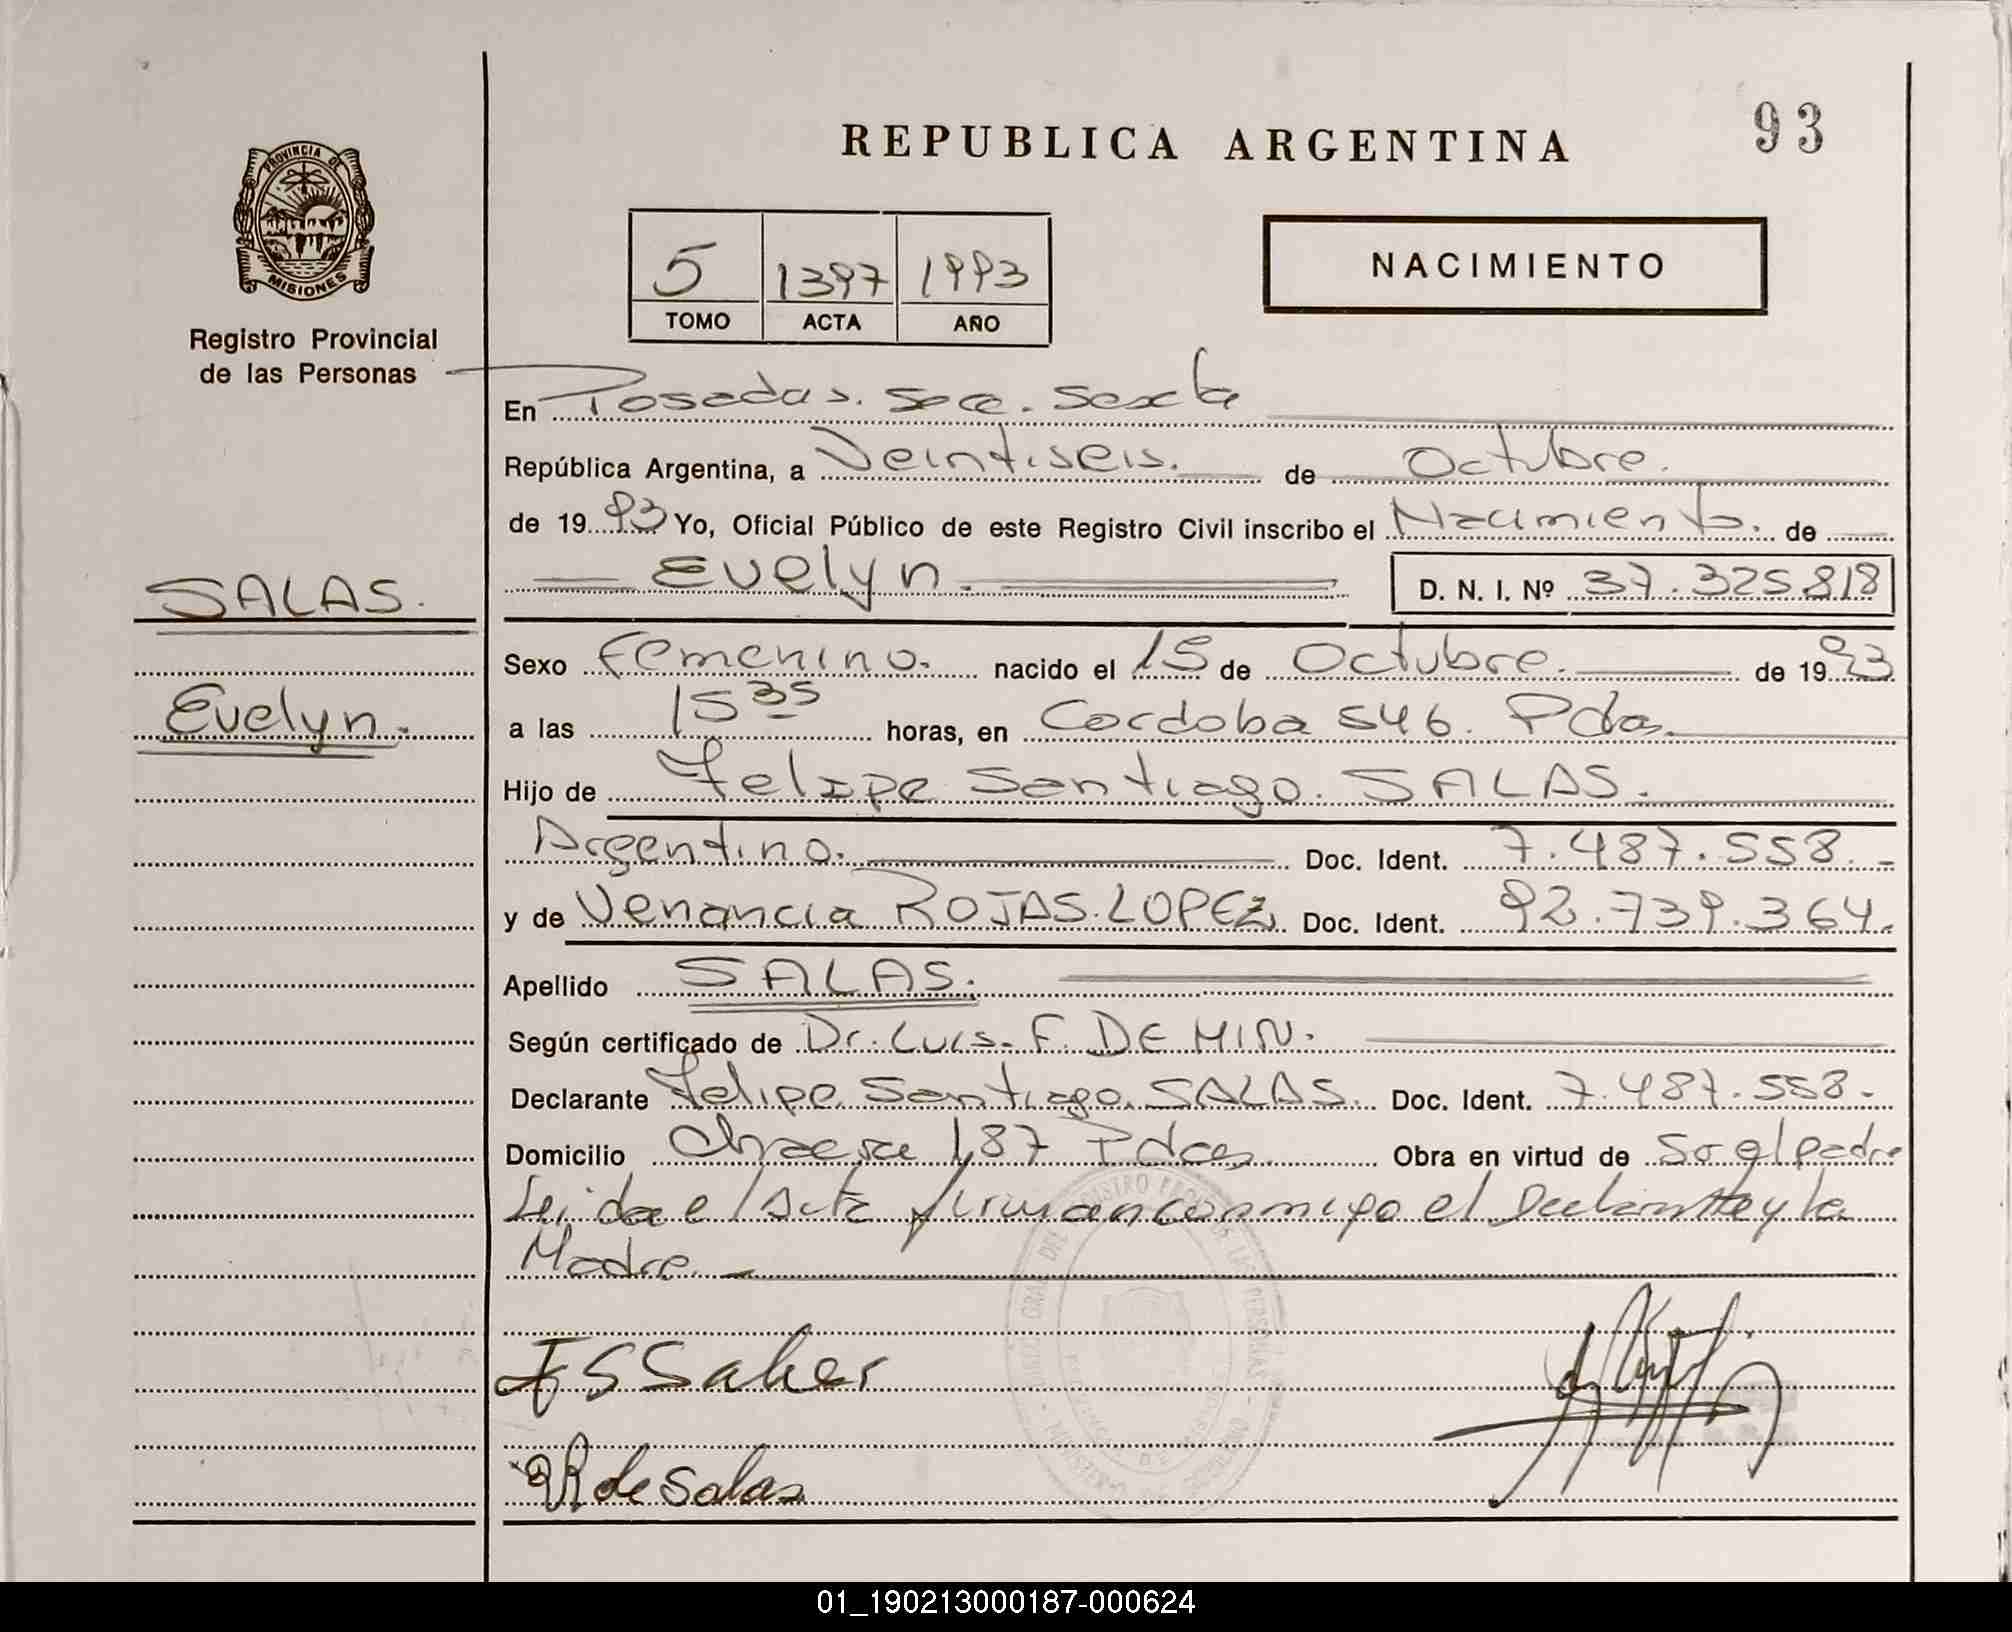 REPUBLICA ARGENTINA
93
PROVINCIA DE
MISIONES
Registro Provincial
de las Personas
5 1397 1993
TOMO ACTA AÑO
NACIMIENTO
En Posadas. Secc. Sexta
República Argentina, a Veintiseis. de Octubre.
de 19 93 Yo, Oficial Público de este Registro Civil inscribo el Nacimiento. de
Evelyn. D. N. I. Nº 37.325.818
SALAS.
Evelyn.
Sexo Femenino. nacido el 15 de Octubre. de 19 93
a las 15 35 horas, en Cordoba 546. Pdas.
Hijo de Felipe Santiago. SALAS.
Argentino. Doc. Ident. 7.487.558.-
y de Venancia ROJAS.LOPEZ Doc. Ident. 92.739.364.
Apellido SALAS.
Según certificado de Dr. Luis. F. DE MIN.
Declarante Felipe Santiago SALAS. Doc. Ident. 7.487.558.-
Domicilio Chacra 187 Pdas Obra en virtud de So el padre
Leida el Acta firman conmigo el Declarante y la
Madre.
R de Salas
01_190213000187-000624